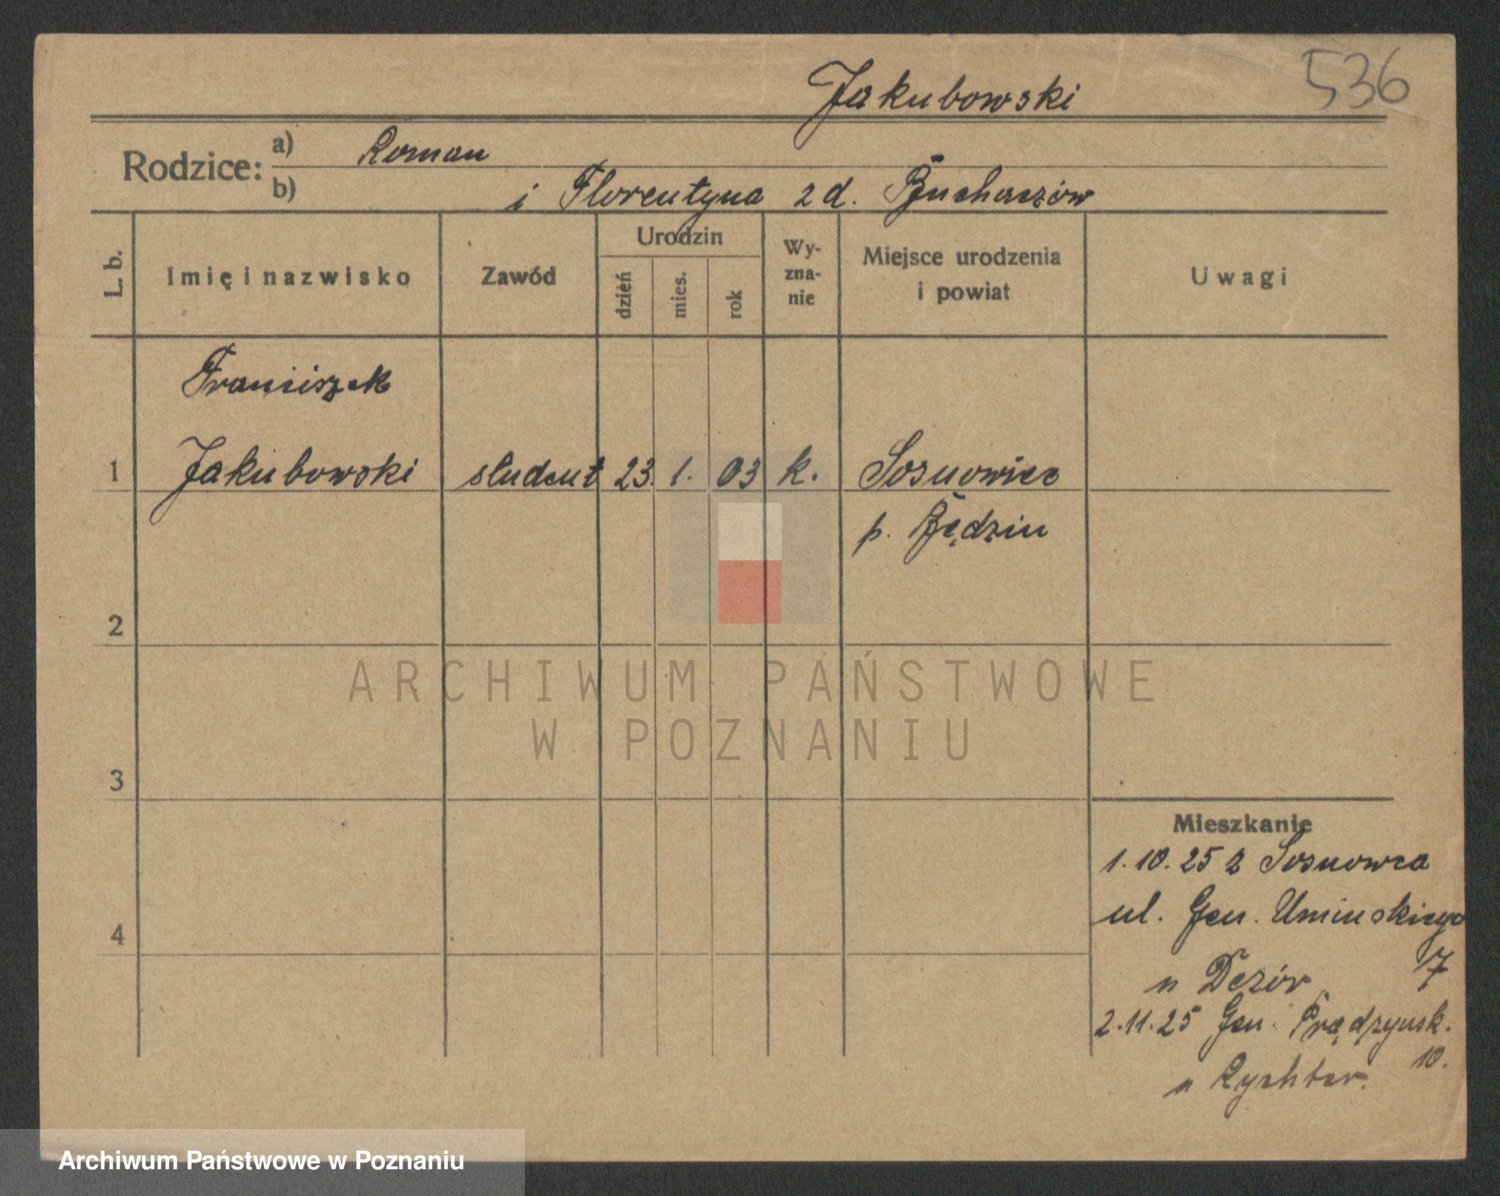 Jakubowski 536
Rodzice: a) Roman
b) i Florentyna z d. Buchaczów
L. b. Imię i nazwisko Zawód Urodzin dzień mies. rok Wyznanie Miejsce urodzenia i powiat Uwagi
Franciszek
1 Jakubowski student 23. 1. 03 k. Sosnowiec
p. Będzin
2
ARCHIWUM PAŃSTWOWE
W POZNANIU
3
Mieszkanie
1.10.25 z Sosnowca
ul. Gen. Umińskiego
4
7
n
2.11.25 Gen. Prądzyńsk.
10.
n Rychter
Archiwum Państwowe w Poznaniu